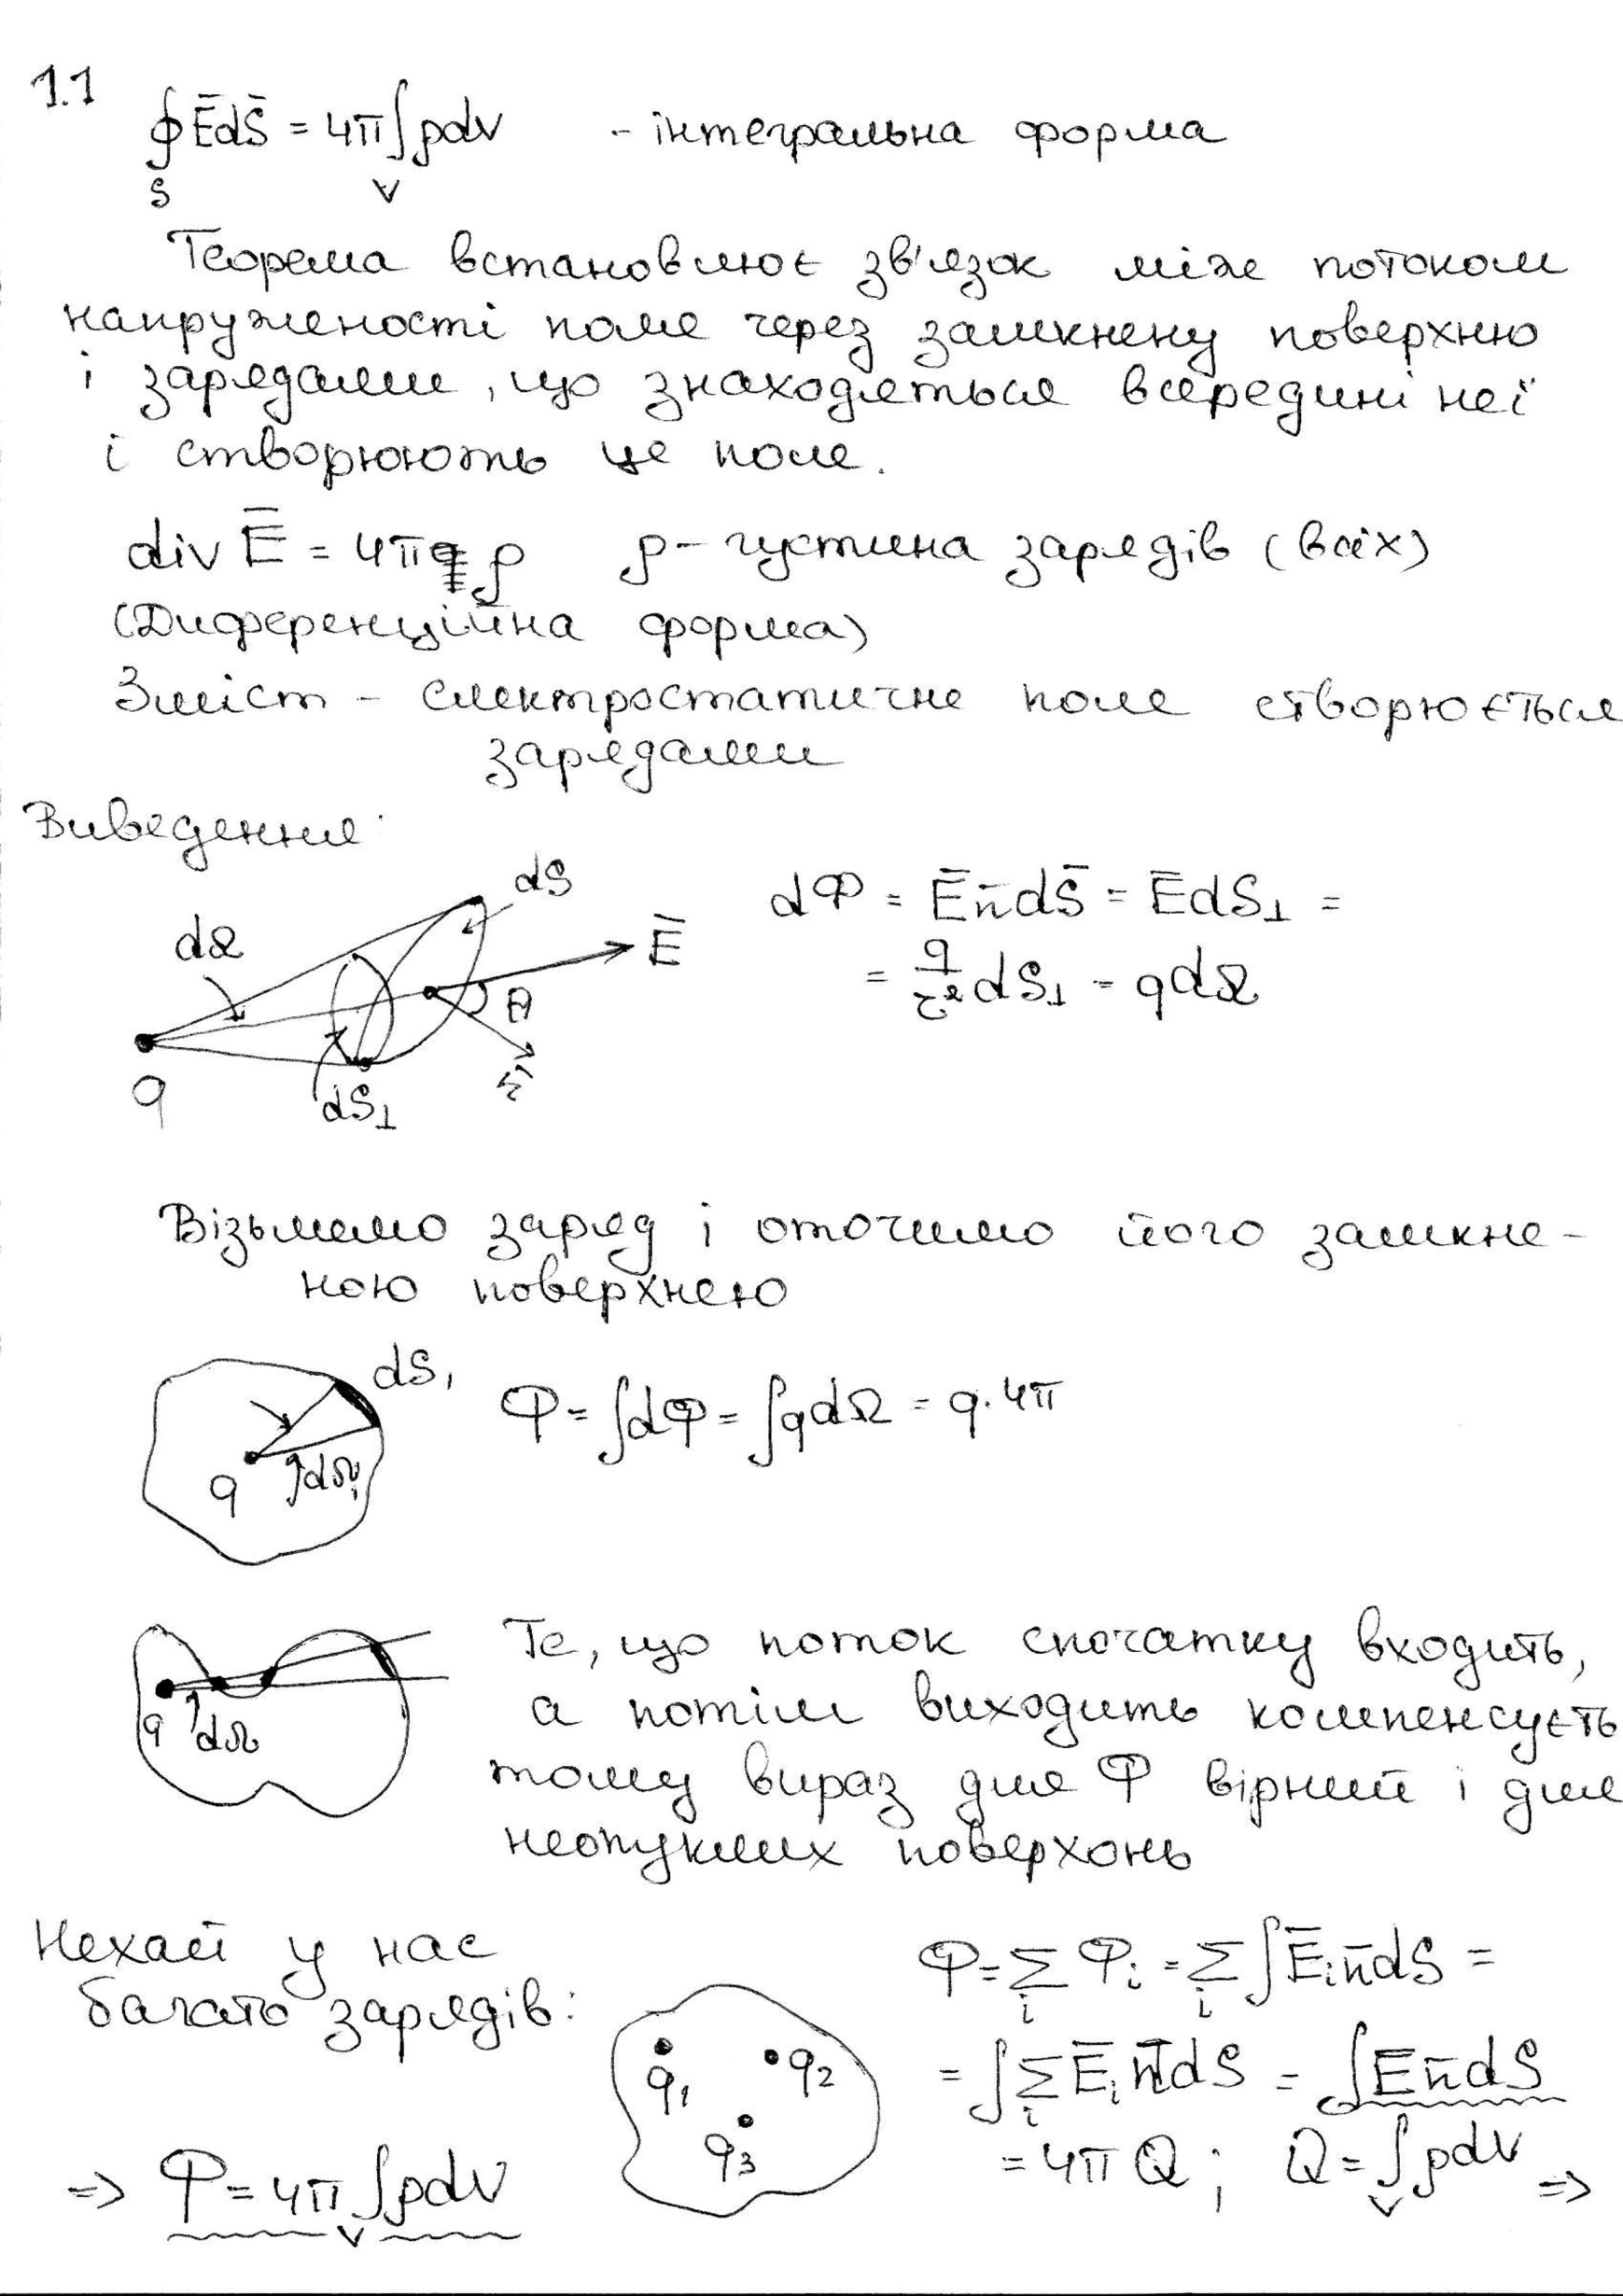 1.1
∮ĒdS̄ = 4π∫ρdv - інтегральна форма
S V
Теорема встановлює зв'язок між потоком
напруженості поля через замкнену поверхню
і зарядами, що знаходяться всередині неї
і створюють це поле.
div Ē = 4πρ ρ - густина зарядів (всіх)
(Диференційна форма)
Зміст - електростатичне поле створюється
зарядами
Виведення:
dS
dΩ
Ē
θ
n̄
q
dS⊥
dΦ = Ēn̄dS̄ = ĒdS⊥ =
= q/r² dS⊥ = qdΩ
Візьмемо заряд і оточимо його замкне-
ною поверхнею
dS₁
q
dΩ₁
Φ = ∫dΦ = ∫qdΩ = q·4π
q dΩ
Те, що поток спочатку входить,
а потім виходить компенсуєть
тому вираз для Φ вірний і для
неопуклих поверхонь
Нехай у нас
багато зарядів:
q₁
q₂
q₃
Φ = Σ Φᵢ = Σ ∫Ēᵢn̄dS =
i i
= ∫Σ Ēᵢn̄dS = ∫En̄dS
i
= 4πQ ; Q = ∫ρdv ⇒
V
⇒ Φ = 4π∫ρdv
V